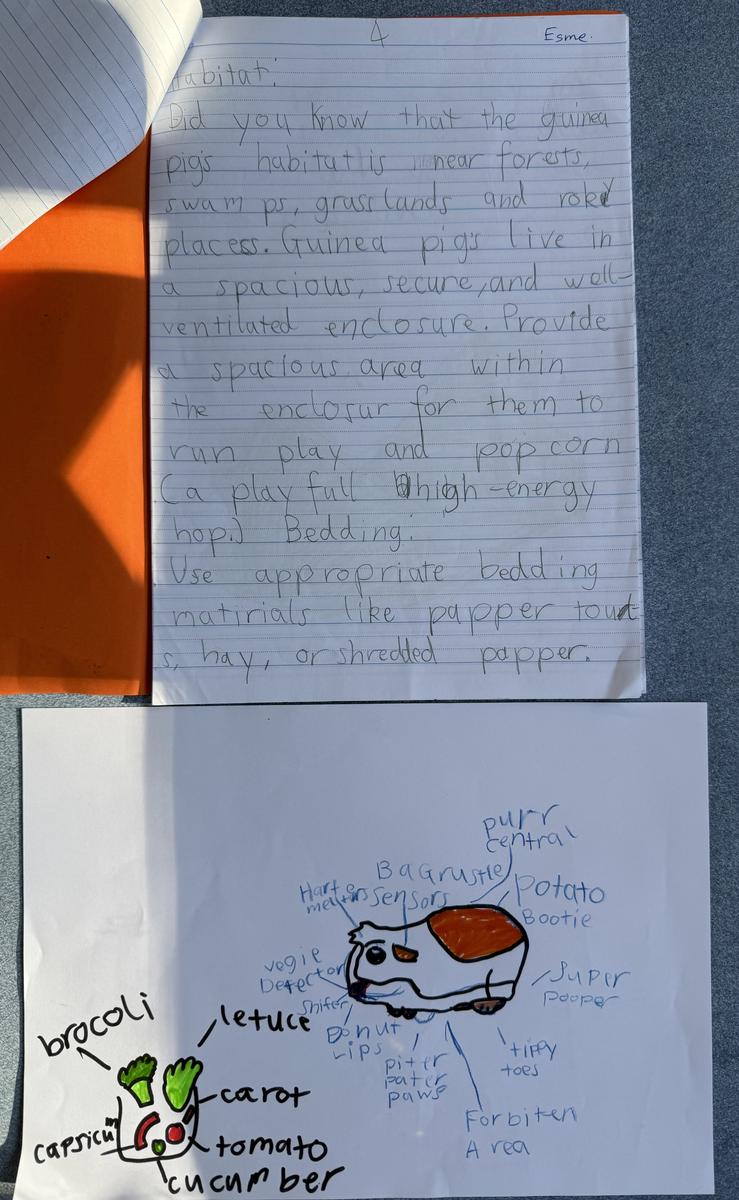 4
Esme.
Habitat:
Did you know that the guinea
pigs habitat is near forests,
swam ps, grasslands and rokey
placess. Guinea pigs live in
a spacious, secure, and well-
ventilated enclosure. Provide
a spacious area within
the enclosur for them to
run play and pop corn
(a play full high-energy
hop.) Bedding:
Use appropriate bedding
matirials like papper
s, hay, or shredded papper.
purr
central
BaGrustle
sensors
Hart
potato
Bootie
vegie
Detector
Shifer
Donut
Lips
piter
pater
paws
Super
pooper
tippy
toes
Forbiten
Area
brocoli
letuce
carot
capsicum
tomato
cucumber